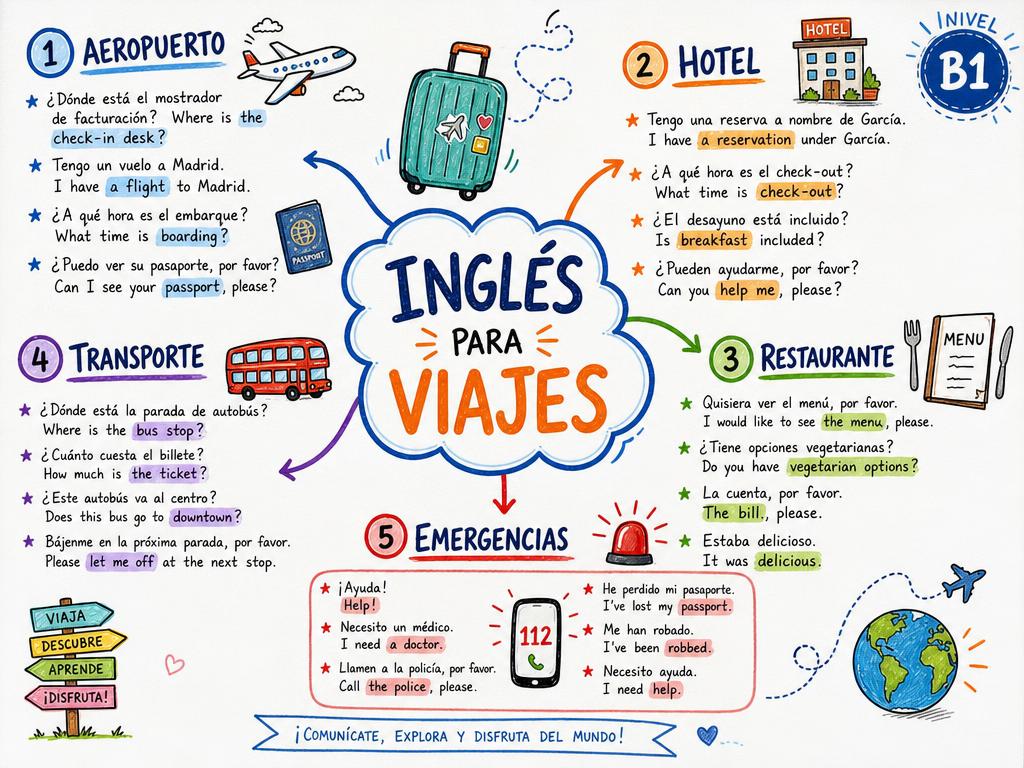 INGLÉS
PARA
VIAJES
INIVEL
B1
1 AEROPUERTO
¿Dónde está el mostrador
de facturación? Where is the
check-in desk?
Tengo un vuelo a Madrid.
I have a flight to Madrid.
¿A qué hora es el embarque?
What time is boarding?
¿Puedo ver su pasaporte, por favor?
Can I see your passport, please?
PASSPORT
2 HOTEL
HOTEL
Tengo una reserva a nombre de García.
I have a reservation under García.
¿A qué hora es el check-out?
What time is check-out?
¿El desayuno está incluido?
Is breakfast included?
¿Pueden ayudarme, por favor?
Can you help me, please?
3 RESTAURANTE
MENU
Quisiera ver el menú, por favor.
I would like to see the menu, please.
¿Tiene opciones vegetarianas?
Do you have vegetarian options?
La cuenta, por favor.
The bill., please.
Estaba delicioso.
It was delicious.
4 TRANSPORTE
¿Dónde está la parada de autobús?
Where is the bus stop?
¿Cuánto cuesta el billete?
How much is the ticket?
¿Este autobús va al centro?
Does this bus go to downtown?
Bájenme en la próxima parada, por favor.
Please let me off at the next stop.
5 EMERGENCIAS
¡Ayuda!
Help!
Necesito un médico.
I need a doctor.
Llamen a la policía, por favor.
Call the police, please.
112
He perdido mi pasaporte.
I've lost my passport.
Me han robado.
I've been robbed.
Necesito ayuda.
I need help.
VIAJA
DESCUBRE
APRENDE
¡DISFRUTA!
¡COMUNÍCATE, EXPLORA Y DISFRUTA DEL MUNDO!